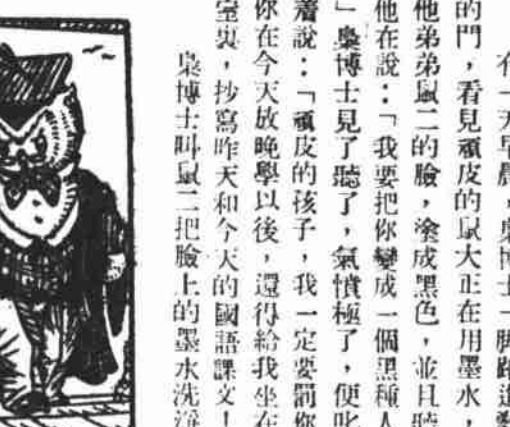 有一天早晨，梟博士一脚踏進
的門，看見頑皮的鼠大正在用墨水，
他弟弟鼠二的臉，塗成黑色，並且聽
他在說：「我要把你變成一個黑種人
」梟博士見了聽了，氣憤極了，便叱
着說：「頑皮的孩子，我一定要罰你
你在今天放晚學以後，還得給我坐在
室裏，抄寫昨天和今天的國語課文！
梟博士叫鼠二把臉上的墨水洗淨